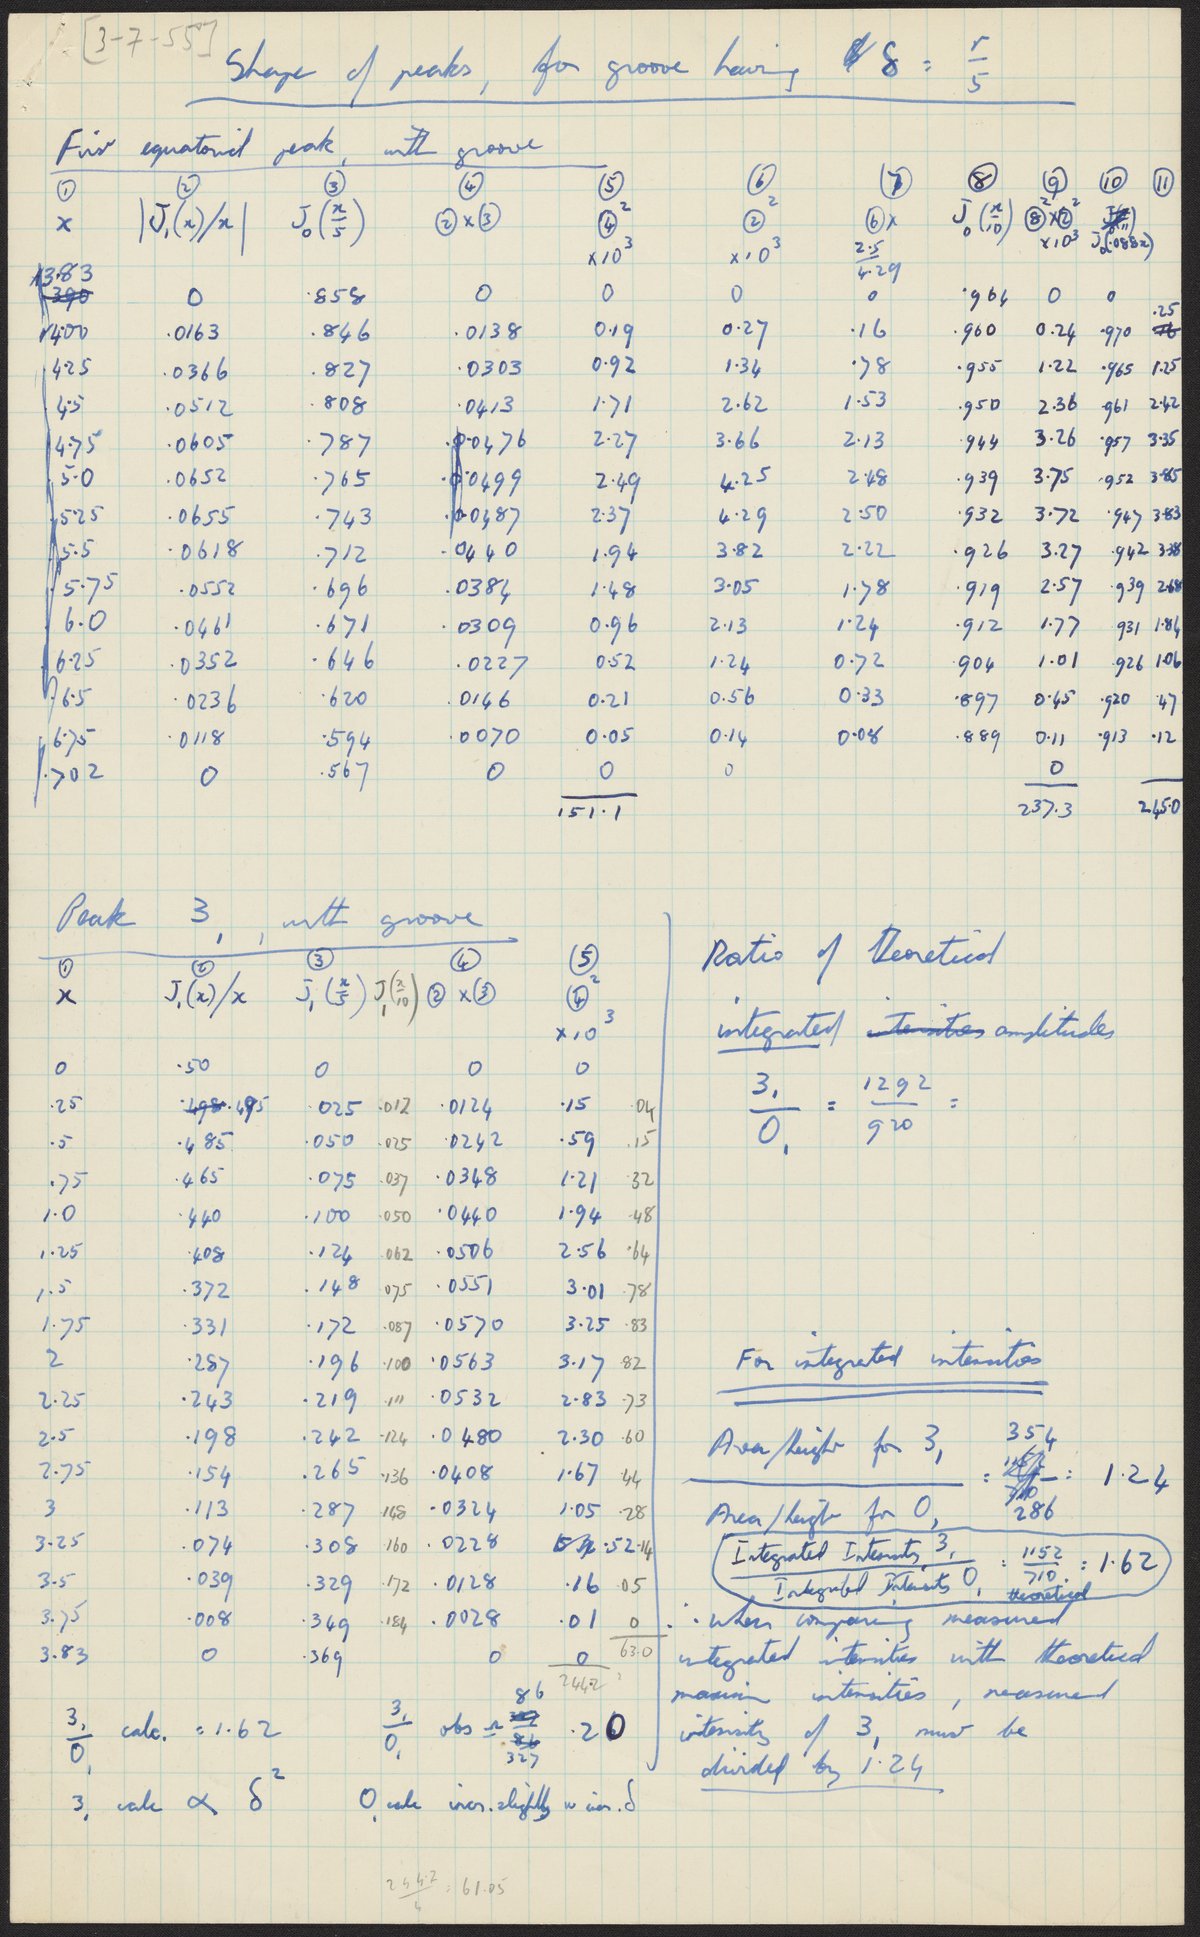 [3-7-55]
Shape of peaks, for groove having δ = r/5
First equatorial peak, with groove
① ② ③ ④ ⑤ ⑥ ⑦ ⑧ ⑨ ⑩ ⑪
x |J₁(x)/x| J₀(x/5) ②×③ ④² ②² ⑥× J₀(x/10) ⑧²×②² J₀(.088x)
×10³ ×10³ 2.5/4.29 ×10³
3.83
390 0 .858 0 0 0 0 .964 0 0
400 .0163 .846 .0138 0.19 0.27 .16 .960 0.24 .970 .25
425 .0366 .827 .0303 0.92 1.34 .78 .955 1.22 .965 1.25
4.5 .0512 .808 .0413 1.71 2.62 1.53 .950 2.36 .961 2.42
4.75 .0605 .787 .0476 2.27 3.66 2.13 .944 3.26 .957 3.35
5.0 .0652 .765 .0499 2.49 4.25 2.48 .939 3.75 .952 3.85
525 .0655 .743 .0487 2.37 4.29 2.50 .932 3.72 .947 3.83
5.5 .0618 .712 .0440 1.94 3.82 2.22 .926 3.27 .942 3.38
5.75 .0552 .696 .0384 1.48 3.05 1.78 .919 2.57 .939 2.68
6.0 .0461 .671 .0309 0.96 2.13 1.24 .912 1.77 931 1.84
6.25 .0352 .646 .0227 0.52 1.24 0.72 .904 1.01 .926 1.06
6.5 .0236 .620 .0146 0.21 0.56 0.33 .897 0.45 .920 .47
6.75 .0118 .594 .0070 0.05 0.14 0.08 .889 0.11 .913 .12
.702 0 .567 0 0 0 0
151.1 237.3 245.0
Peak 3₁, with groove
① ② ③ ④ ⑤
x J₁(x)/x J₁(x/5) J₁(x/10) ②×③ ④²
×10³
0 .50 0 0 0
.25 .498 .495 .025 .012 .0124 .15 .04
.5 .485 .050 .025 .0242 .59 .15
.75 .465 .075 .037 .0348 1.21 .32
1.0 .440 .100 .050 .0440 1.94 .48
1.25 .408 .124 .062 .0506 2.56 .64
1.5 .372 .148 .075 .0551 3.01 .78
1.75 .331 .172 .087 .0570 3.25 .83
2 .287 .196 .100 .0563 3.17 .82
2.25 .243 .219 .111 .0532 2.83 .73
2.5 .198 .242 .124 .0480 2.30 .60
2.75 .154 .265 .136 .0408 1.67 .44
3 .113 .287 .148 .0324 1.05 .28
3.25 .074 .308 .160 .0228 .52 .14
3.5 .039 .329 .172 .0128 .16 .05
3.75 .008 .349 .184 .0028 .01 0
3.83 0 .369 0 0 63.0
244.2
3₁/0₁ calc. = 1.62 3₁/0₁ obs = 86/327 .20
3₁ calc ∝ δ² 0₁ calc incr. slightly w incr. δ
244.2/4 = 61.05
Ratio of theoretical
integrated intensities amplitudes
3₁/0₁ = 1292/920 =
For integrated intensities
Area/height for 3₁ / Area/height for 0₁ = 354/286 = 1.24
Integrated Intensity 3₁ / Integrated Intensity 0₁ = 1152/710 = 1.62
theoretical
∴ when comparing measured
integrated intensities with theoretical
maxim intensities, measured
intensity of 3₁ must be
divided by 1.24